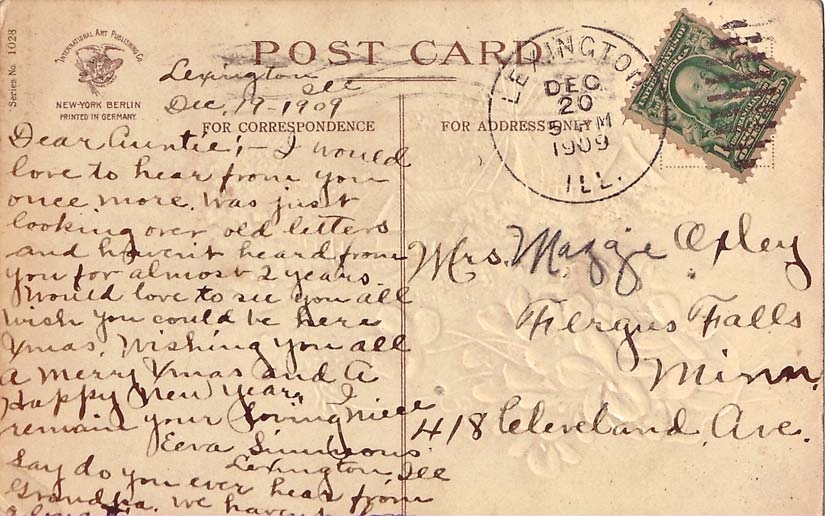 Series No. 1028
INTERNATIONAL ART PUBLISHING CO.
NEW-YORK BERLIN
PRINTED IN GERMANY.
POST CARD
FOR CORRESPONDENCE
FOR ADDRESS ONLY
LEXINGTON
DEC
20
5 PM
1909
ILL.
Lexington
Ill
Dec, 19-1909
Dear Auntie;- I would
love to hear from you
once more. Was just
looking over old letters
and haven't heard from
you for almost 2 years.
Would love to see you all
wish you could be here
Xmas. Wishing you all
a Merry Xmas and A
Happy New Year, I
remain your loving Niece
Eeva Simmons
Lexington, Ill
Say do you ever hear from
Grandpa. We haven't
Mrs. Maggie Oxley
Fergus Falls
Minn.
418 Cleveland, Ave.